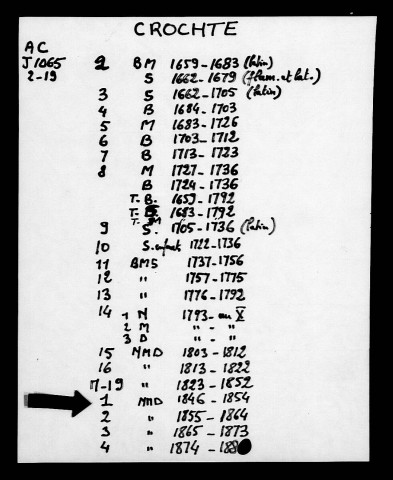 CROCHTE
AC
J1065
2-19
2 BM 1659-1683 (latin)
S 1662-1679 (flam. et lat.)
3 S 1662-1705 (latin)
4 B 1684-1703
5 M 1683-1726
6 B 1703-1712
7 B 1713-1723
8 M 1727-1736
B 1724-1736
T. B. 1659-1792
T. 1683-1792
T. M
9 S. 1705-1736 (latin)
10 S. enfants 1722-1736
11 BMS 1737-1756
12 " 1757-1775
13 " 1776-1792
14 1 N 1793-an X
2 M " - "
3 D " - "
15 NMD 1803-1812
16 " 1813-1822
17-19 " 1823-1852
1 NMD 1846-1854
2 " 1855-1864
3 " 1865-1873
4 " 1874-188